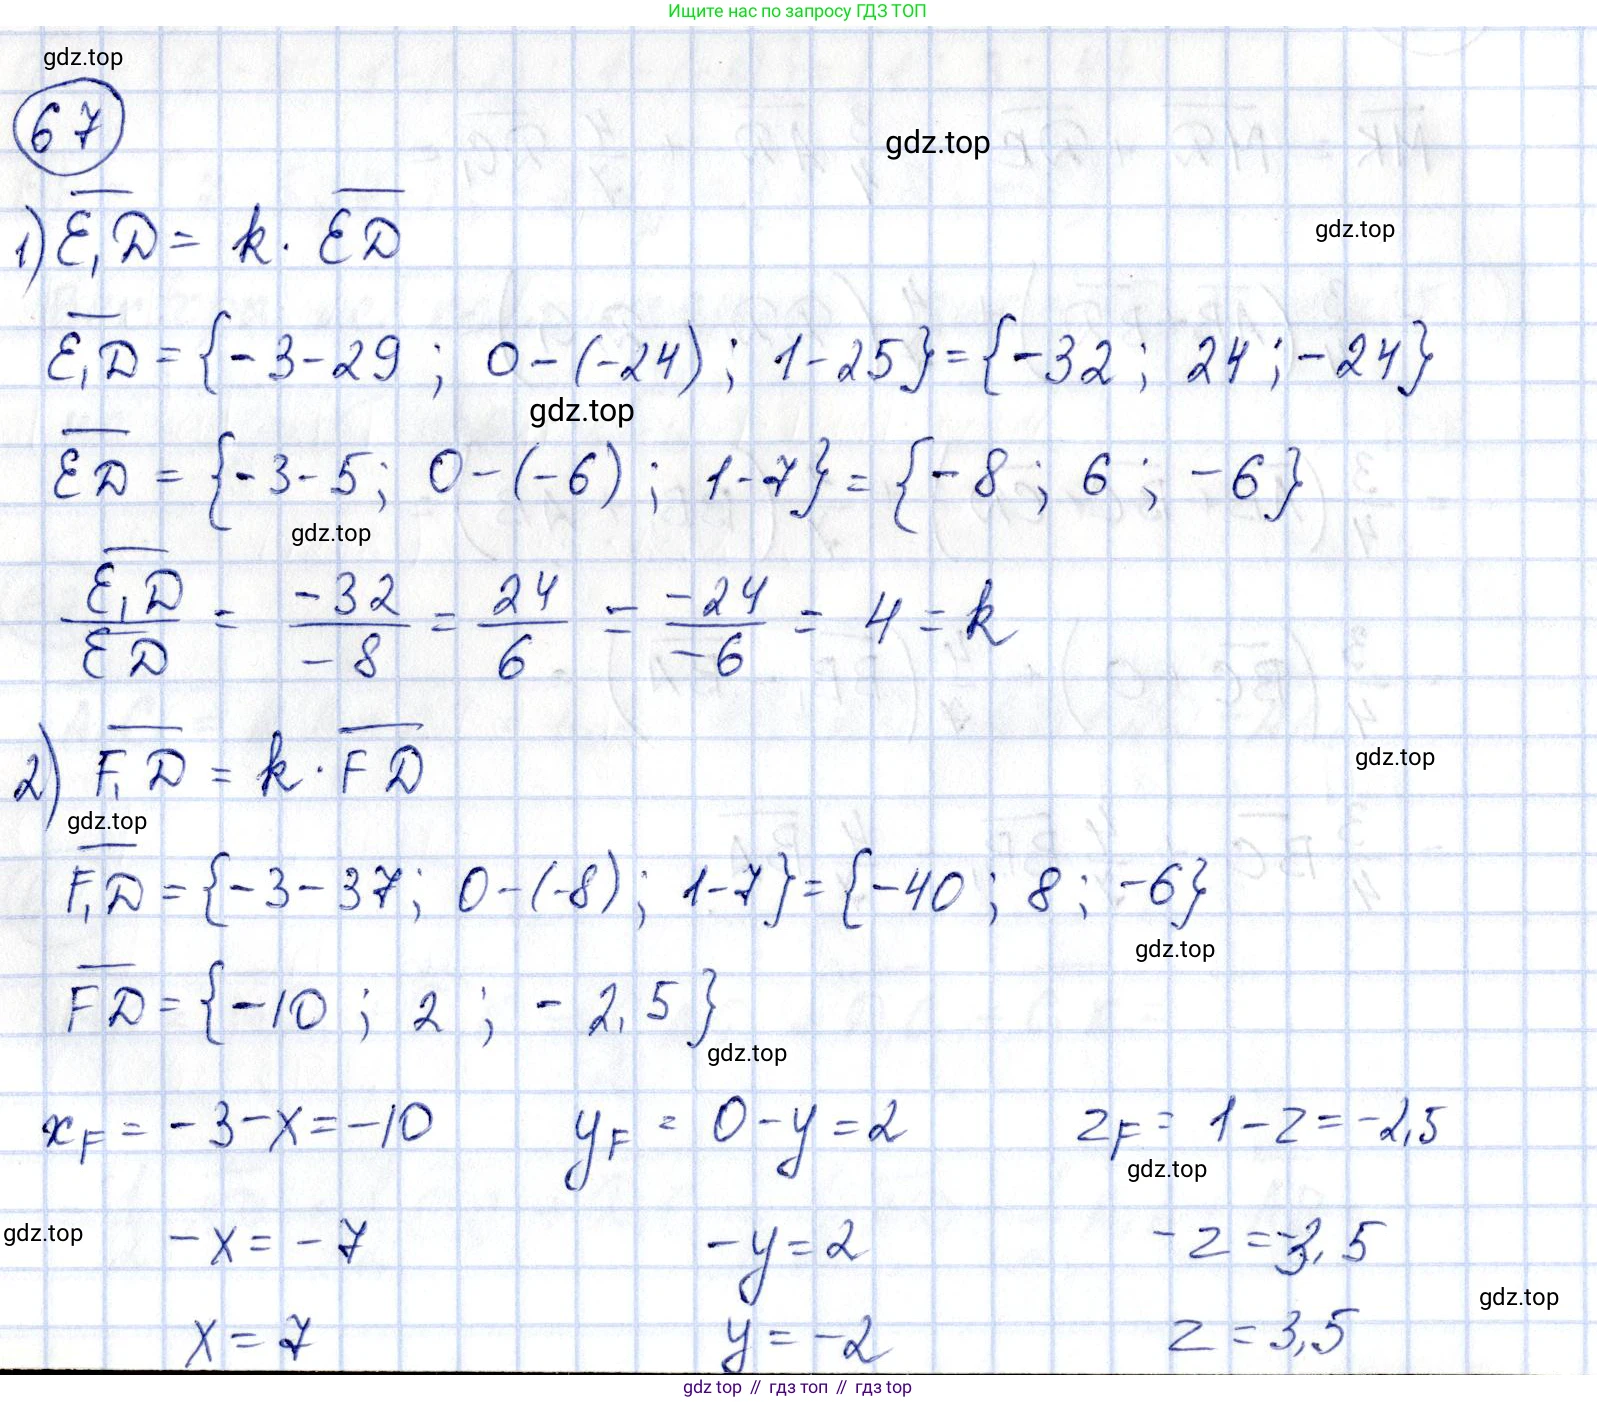 Ищите нас по запросу ГДЗ ТОП
gdz.top
67
gdz.top
1) E₁D = k · ED
gdz.top
E₁D = {-3-29; 0-(-24); 1-25} = {-32; 24; -24}
gdz.top
ED = {-3-5; 0-(-6); 1-7} = {-8; 6; -6}
gdz.top
E₁D/ED = -32/-8 = 24/6 = -24/-6 = 4 = k
2) F₁D = k · FD
gdz.top
gdz.top
F₁D = {-3-37; 0-(-8); 1-7} = {-40; 8; -6}
gdz.top
FD = {-10; 2; -2,5}
gdz.top
x_F = -3-x = -10 y_F = 0-y = 2 z_F = 1-z = -2,5
gdz.top
gdz.top
-x = -7 -y = 2 -z = -3,5
gdz.top
x = 7 y = -2 z = 3,5
gdz top // гдз топ // гдз top